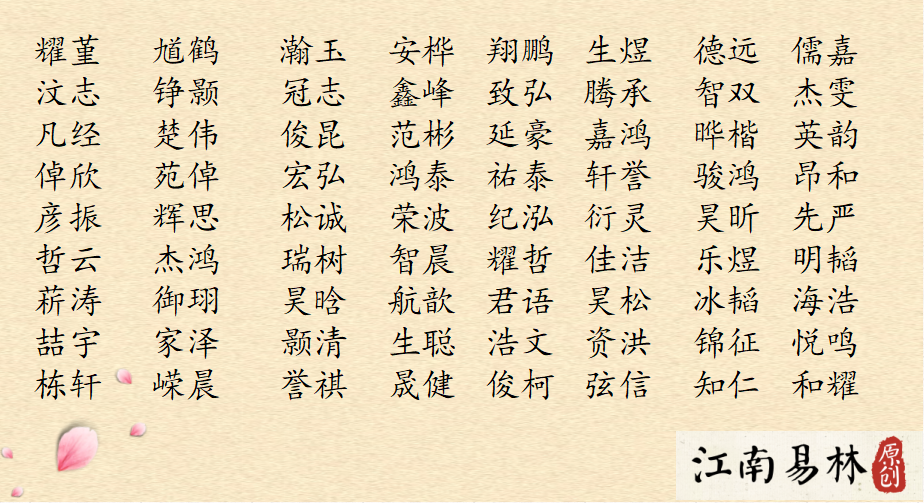 耀堇 馗鹤 瀚玉 安桦 翔鹏 生煜 德远 儒嘉
汶志 铮颢 冠志 鑫峰 致弘 腾承 智双 杰雯
凡经 楚伟 俊昆 范彬 延豪 嘉鸿 晔楷 英韵
倬欣 苑倬 宏弘 鸿泰 祐泰 轩誉 骏鸿 昂和
彦振 辉思 松诚 荣波 纪泓 衍灵 昊昕 先严
哲云 杰鸿 瑞树 智晨 耀哲 佳洁 乐煜 明韬
蕲涛 御珝 昊晗 航歆 君语 昊松 冰韬 海浩
喆宇 家泽 颢清 生聪 浩文 资洪 锦征 悦鸣
栋轩 嵘晨 誉祺 晟健 俊柯 弦信 知仁 和耀
江南易林 原创